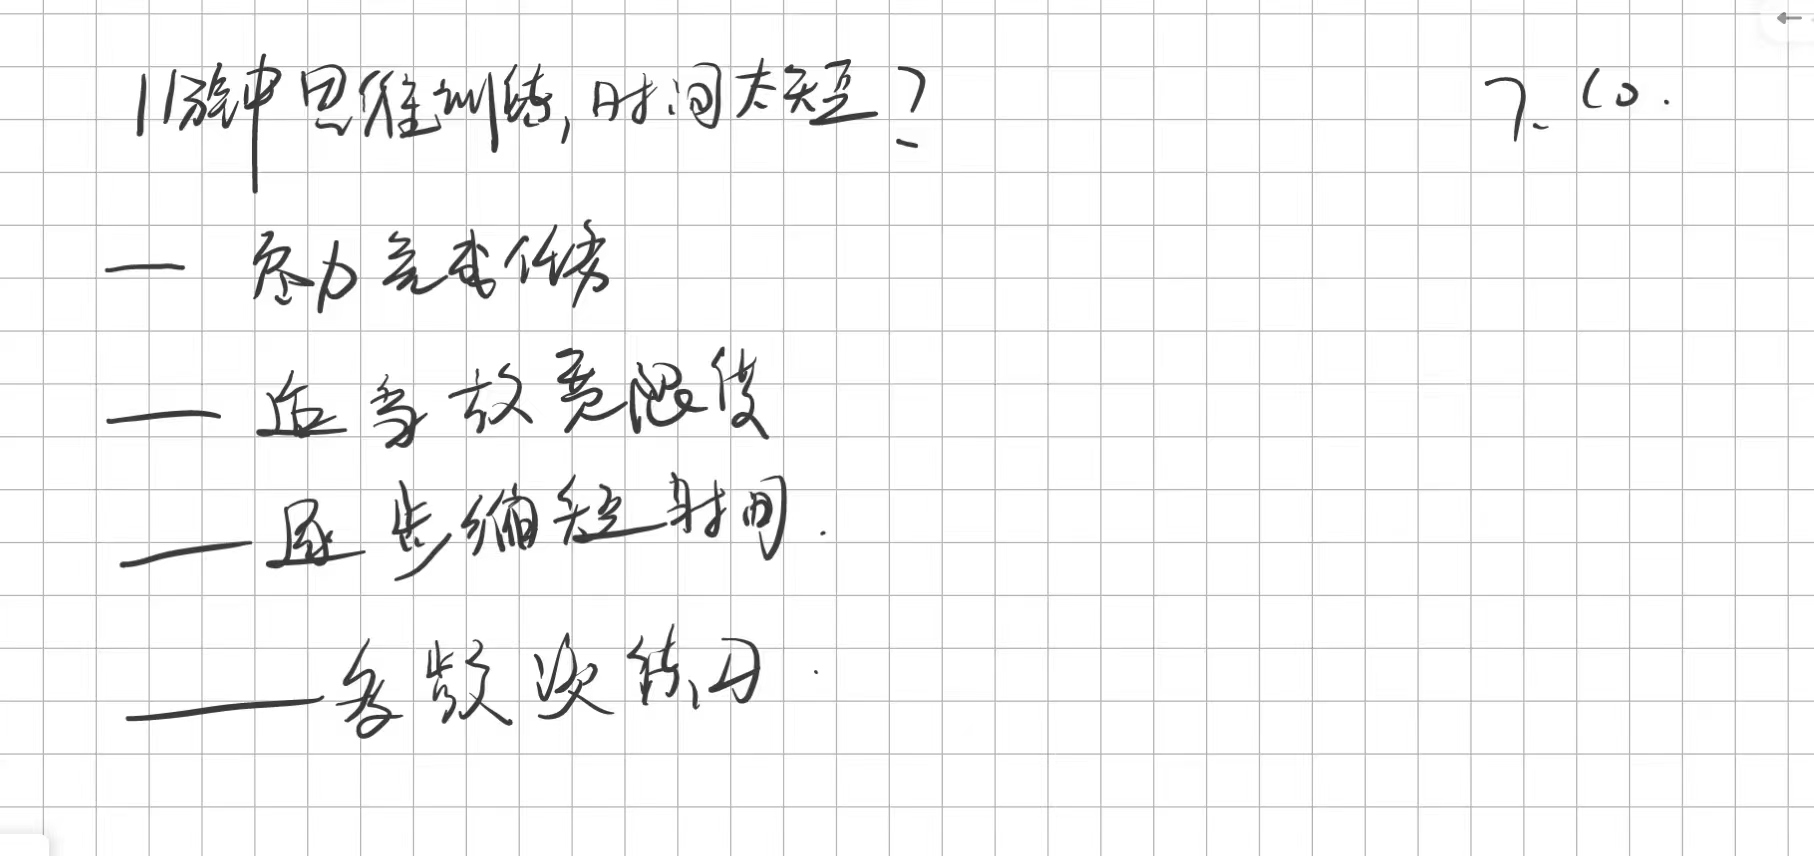 11分钟思维训练,时间太短? 7.10.
— 尽力完成任务
— 适当放宽限度
— 逐步缩短时间.
— 多频次练习.